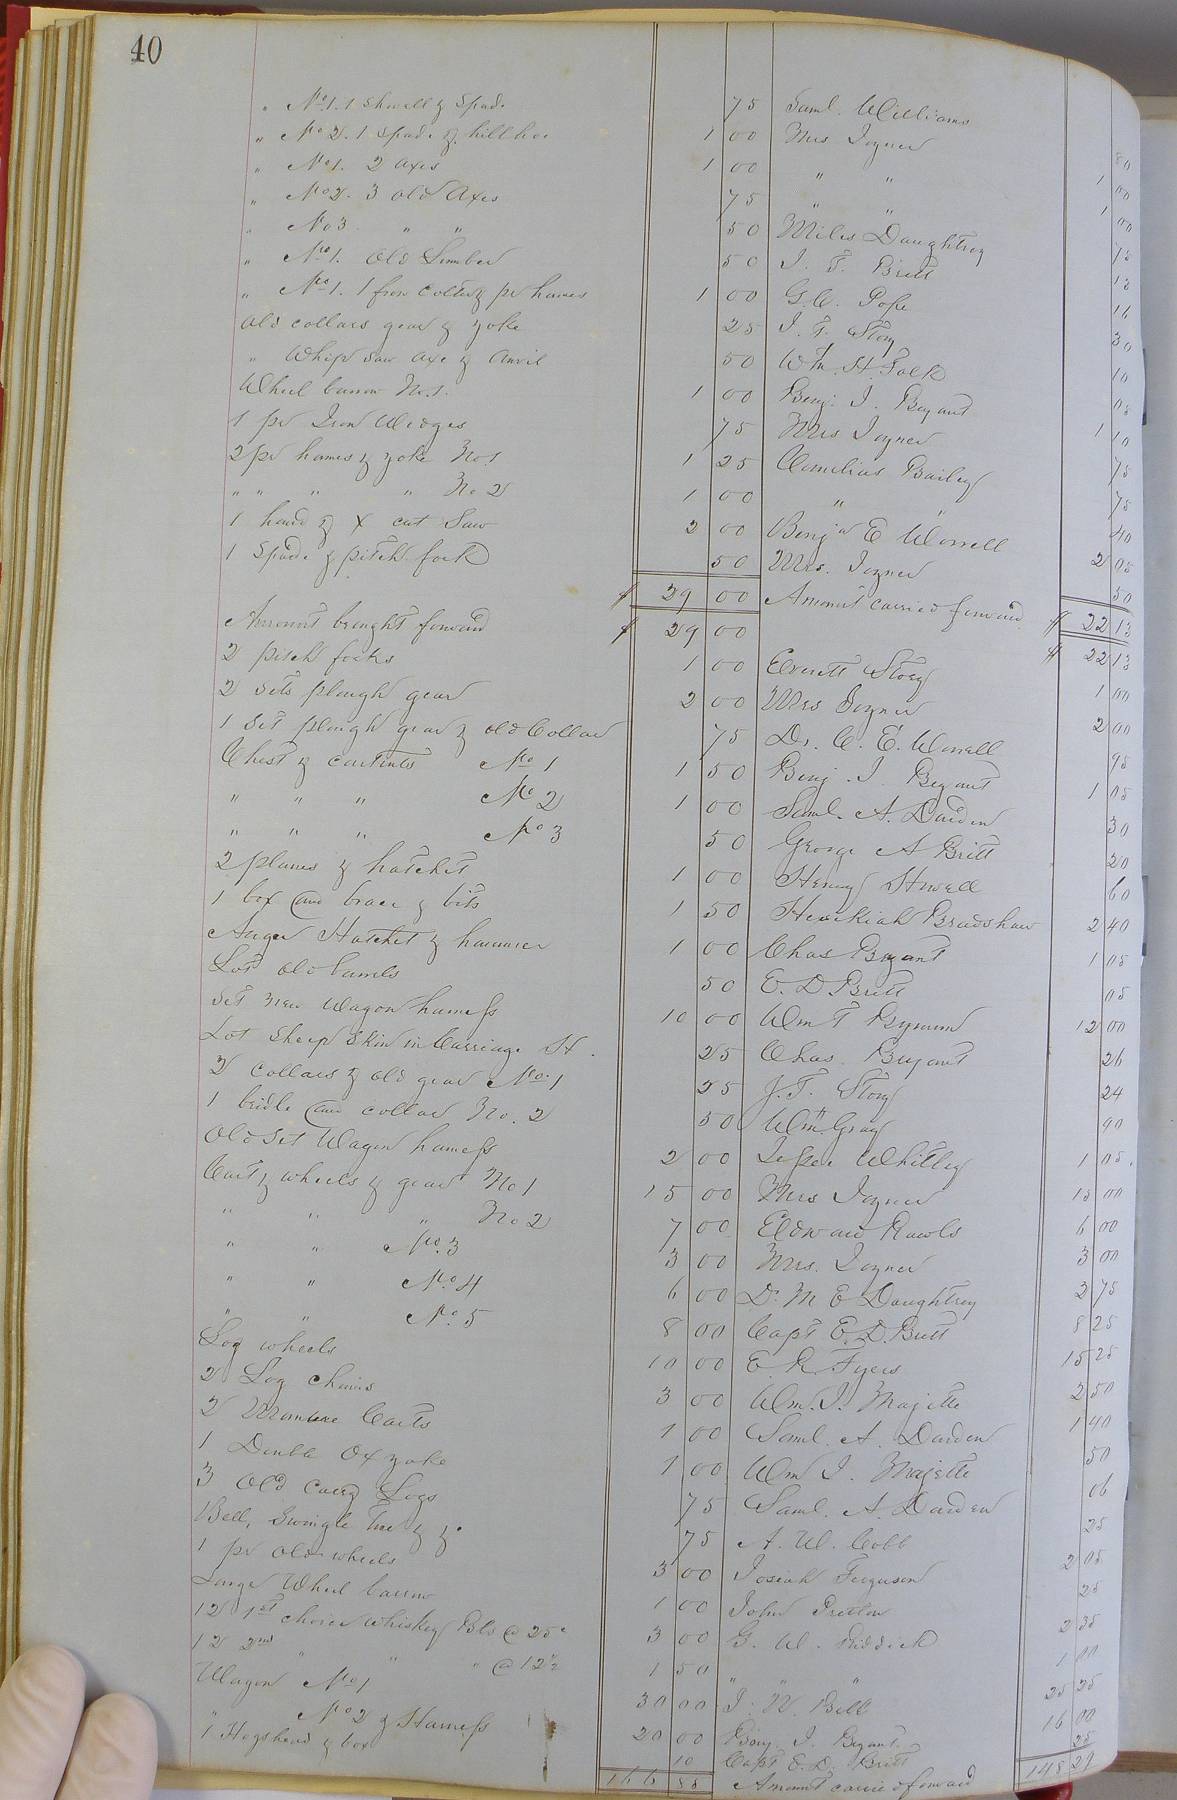 40
" No 1. 1 Shovell & Spade 75 Saml. Williams 80
" No 2. 1 Spade & hill hoe 1 00 Mrs Joyner 1 00
" No 1. 2 Axes 1 00 " " 1 00
" No 2. 3 old Axes 75 " " 75
" No 3. " " 50 Miles Daughtrey 13
" No 1. Old Lumber 50 J. T. Britt 11
" No 1. 1 iron colter & pr hames 1 00 G. C. Pope 30
Old collars gear & yoke 25 J. T. Story 10
" Whip saw axe & Anvil 50 Wm. H. Folk 05
Wheel barrow No. 1. 1 00 Benj. J. Bryant 1 10
1 pr Iron Wedges 75 Mrs Joyner 75
2 pr hames & yoke No. 1 1 25 Cornelius Bailey 75
" " " " No 2 1 00 " " 40
1 hand & X cut Saw 2 00 Benjn E Worrell 2 05
1 Spade & pitch fork 50 Mrs. Joyner 50
$ 29 00 Amount carried forward $ 22 13
Amount brought forward $ 29 00 $ 22 13
2 pitch forks 1 00 Everett Story 1 00
2 sets plough gear 2 00 Mrs Joyner 2 00
1 Set plough gear & old Collar 75 Dr. C. E. Worrell 95
Chest & contents No 1 1 50 Benj. J. Bryant 1 05
" " " No 2 1 00 Saml. A. Darden 30
" " " No 3 50 George A Britt 20
2 planes & hatchet 1 00 Henry Howell 60
1 box and brace & bits 1 50 Hezekiah Bradshaw 2 40
Auger Hatchet & hammer 1 00 Chas Bryant 1 05
Lot old barrels 50 E. D Britt 05
Set new Wagon harness 10 00 Wm T Bynum 12 00
Lot Sheep Skin in Carriage H. 25 Chas. Bryant 26
2 collars & old gear No. 1 25 J. T. Story 24
1 bridle and collar No. 2 50 Wm. Gray 90
Old Set Wagon harness 2 00 Jesse Whitley 1 05
Cart & wheels & gear No 1 15 00 Mrs Joyner 15 00
" " " No 2 7 00 Edward Rawls 6 00
" " No. 3 3 00 Mrs. Joyner 3 00
" " No. 4 6 00 Dr. M E Daughtrey 3 75
" " No. 5 8 00 Capt E. D. Britt 8 25
Log wheels 10 00 E R Fyers 15 25
2 Log chains 3 00 Wm. J. Majette 2 50
2 Manure Carts 1 00 Saml. A. Darden 1 40
1 Double Ox yoke 1 00 Wm J. Majette 50
3 Old Logs 75 Saml. A. Darden 06
1 Bell, Swingle tree & & 75 A. W. Cobb 25
1 pr old wheels 3 00 Josiah Ferguson 2 05
Large Wheel barrow 1 00 John Pretlow 25
12 1st choice Whiskey Bls @ 25c 3 00 G. W. Riddick 2 35
12 2nd " " " @ 12½ 1 50 " " 1 00
Wagon No 1 30 00 J. W. Bell 25 25
" No 2 & Harness 20 00 Benj. J. Bryant 16 00
1 Hogshead & box 10 Capt E. D. Britt 25
166 85 Amount carried forward 148 29